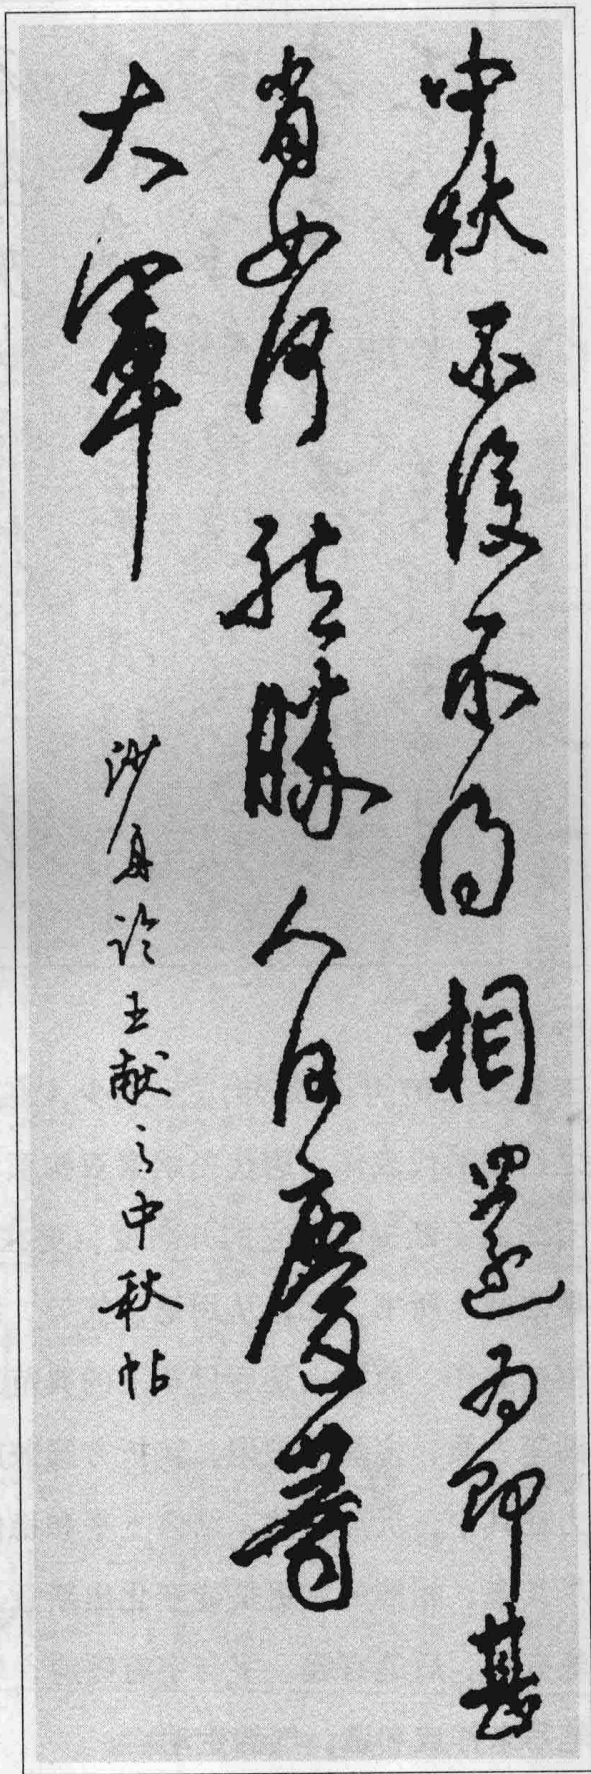 中秋不復不得相還為即甚
省如何然勝人何慶等
大軍
沙舟论王献之中秋帖